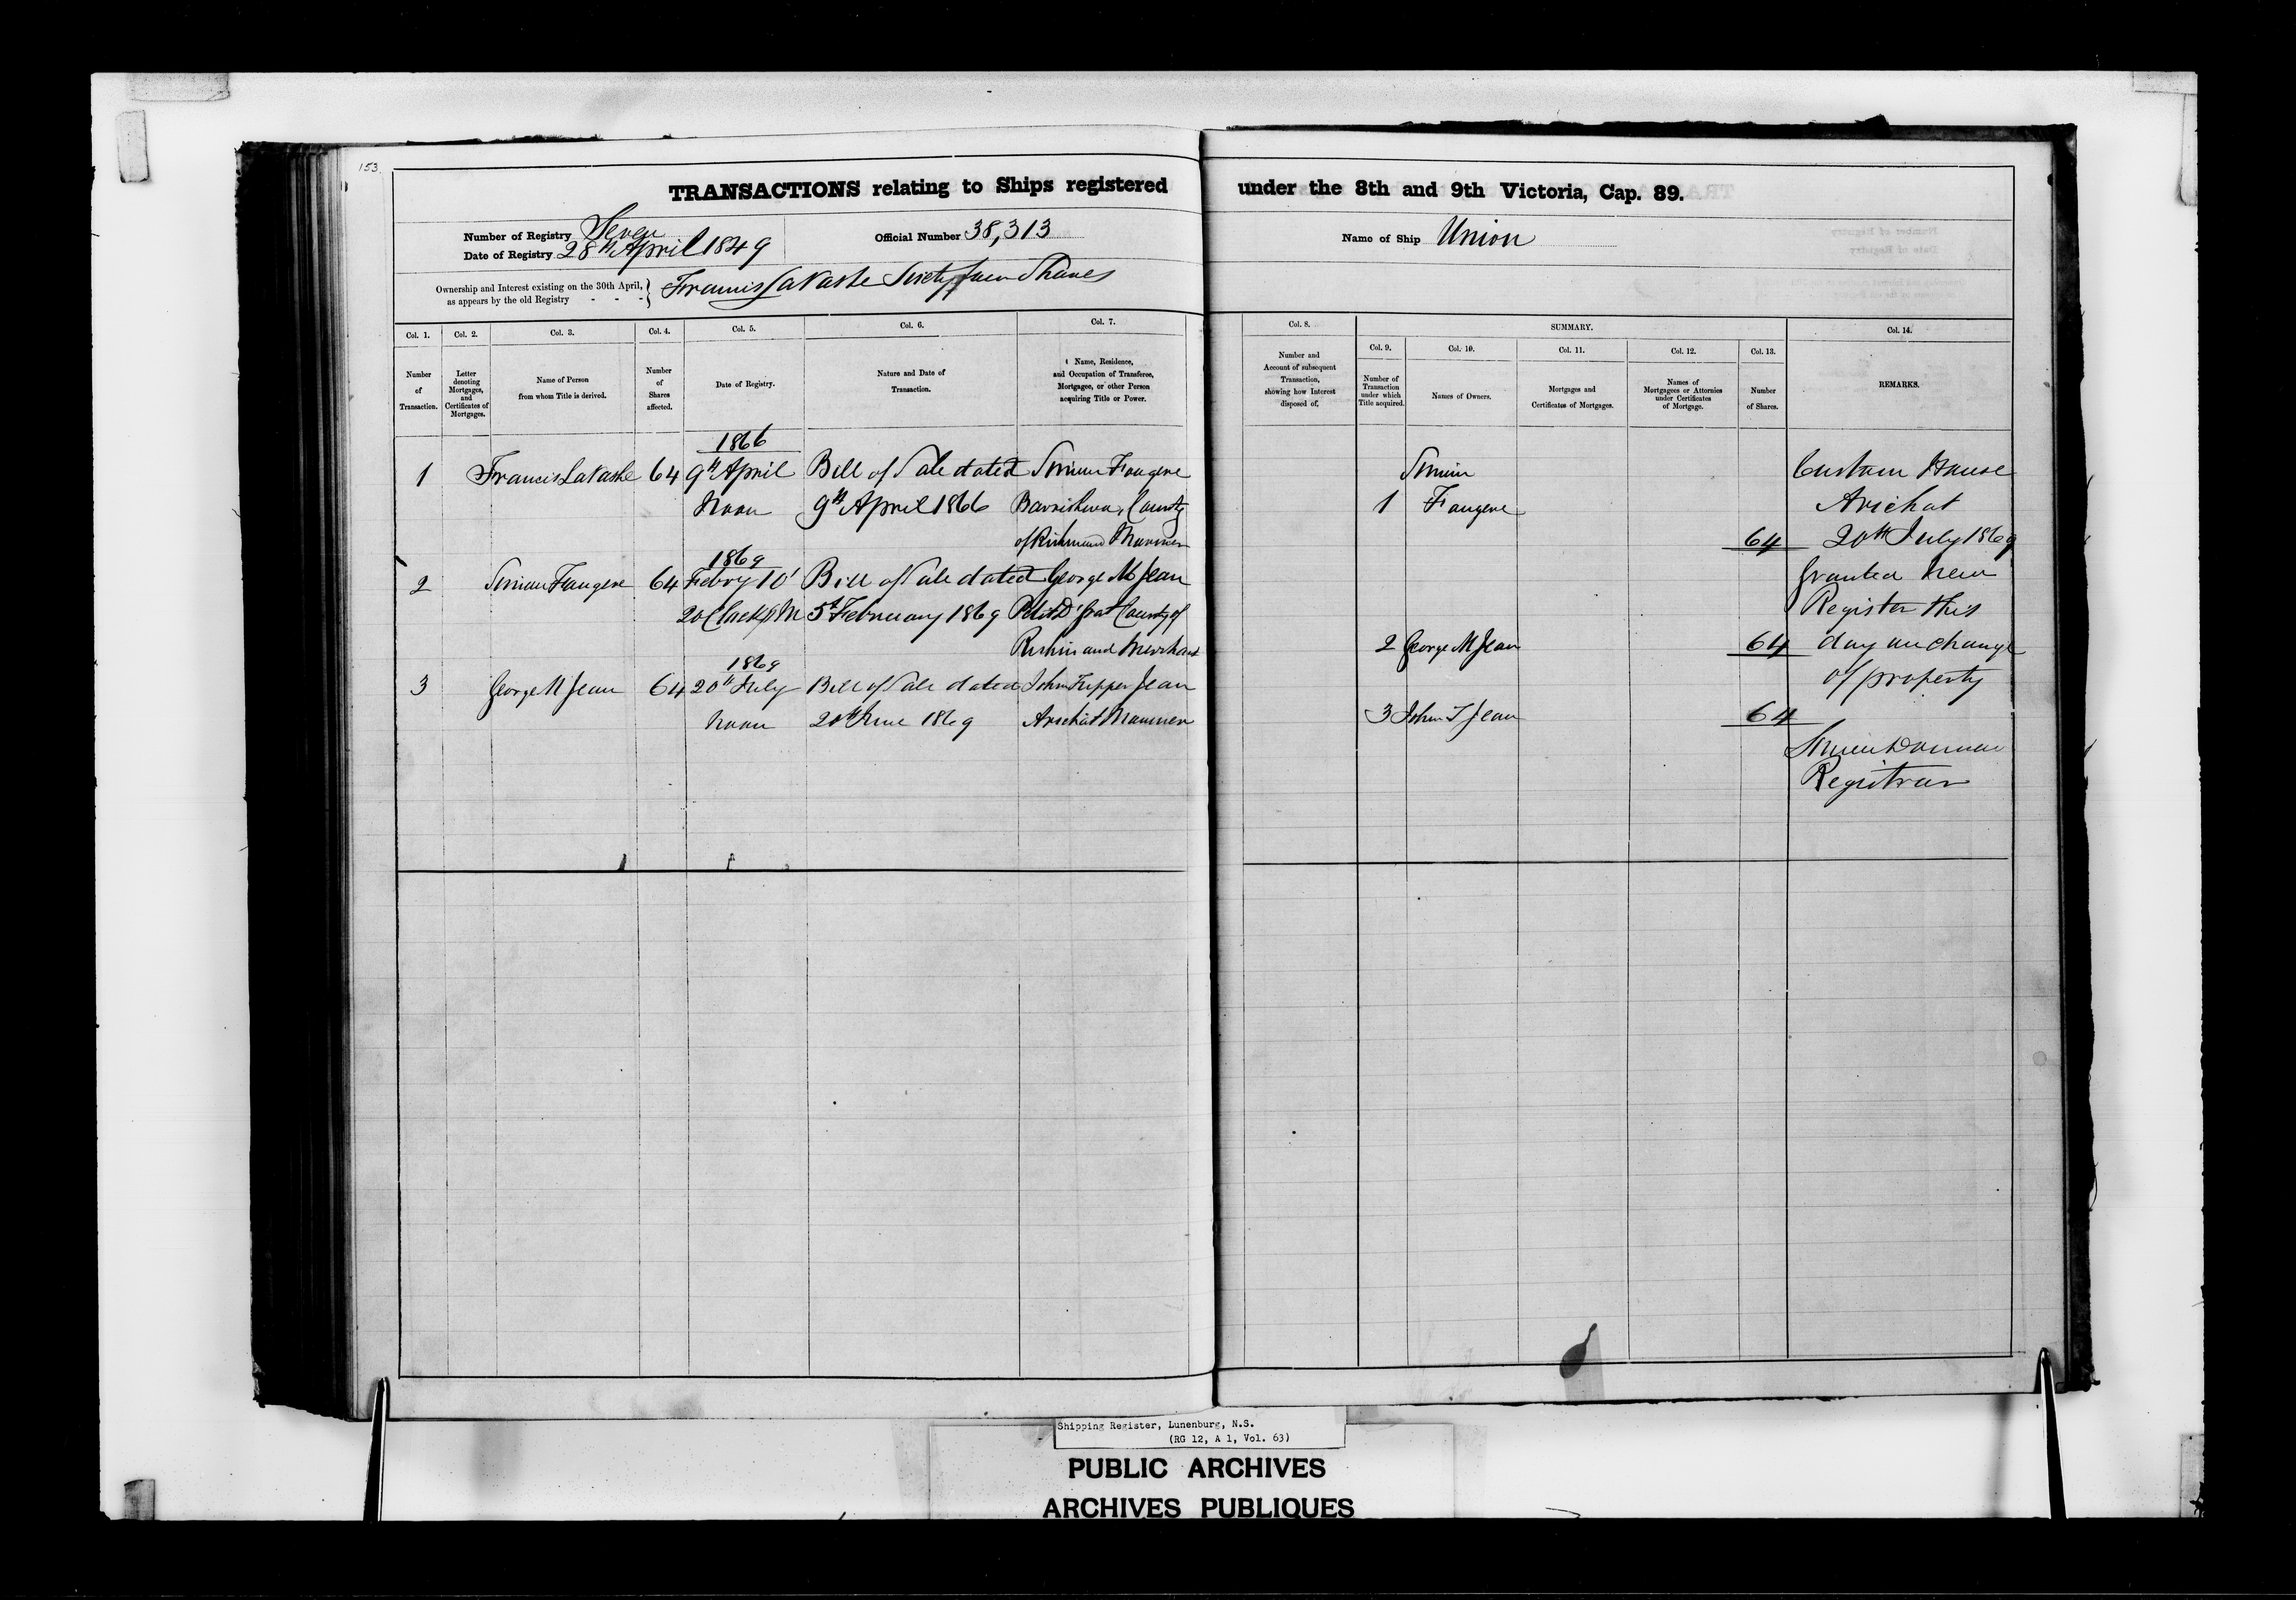 153.
TRANSACTIONS relating to Ships registered under the 8th and 9th Victoria, Cap. 89.
Number of Registry Seven
Date of Registry 28th April 1849
Official Number 38,313
Name of Ship Union
Ownership and Interest existing on the 30th April, as appears by the old Registry - - - } Francis LaVashe Sixty four Shares
Col. 1. Col. 2. Col. 3. Col. 4. Col. 5. Col. 6. Col. 7. Col. 8. SUMMARY. Col. 14.
Col. 9. Col. 10. Col. 11. Col. 12. Col. 13.
Number of Transaction.
Letter denoting Mortgages, and Certificates of Mortgages.
Name of Person from whom Title is derived.
Number of Shares affected.
Date of Registry.
Nature and Date of Transaction.
Name, Residence, and Occupation of Transferee, Mortgagee, or other Person acquiring Title or Power.
Number and Account of subsequent Transaction, showing how Interest disposed of.
Number of Transaction under which Title acquired.
Names of Owners.
Mortgages and Certificates of Mortgages.
Names of Mortgagees or Attornies under Certificates of Mortgage.
Number of Shares.
REMARKS.
1866
1 Francis LaVashe 64 9th April Bill of Sale dated Simon Fougere
Noon 9th April 1866 County
of Richmond Mariner
1869
2 Simon Fougere 64 Febry 10' Bill of Sale dated George M Jean
2 oClock PM 5th February 1869 Petit D'Grat County of
Richmond Merchant
1869
3 George M Jean 64 20th July Bill of Sale dated John Tupper Jean
Noon 20th June 1869 Arichat Mariner
Simon
1 Fougere
64
2 George M Jean 64
3 John T Jean 64
Custom House
Arichat
20th July 1869
Granted New
Register this
day on change
of property
Registrar
Shipping Register, Lunenburg, N.S.
(RG 12, A 1, Vol. 63)
PUBLIC ARCHIVES
ARCHIVES PUBLIQUES